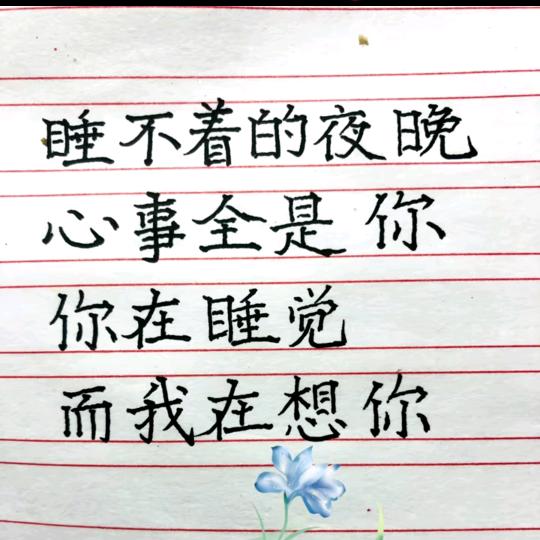 睡不着的夜晚
心事全是你
你在睡觉
而我在想你